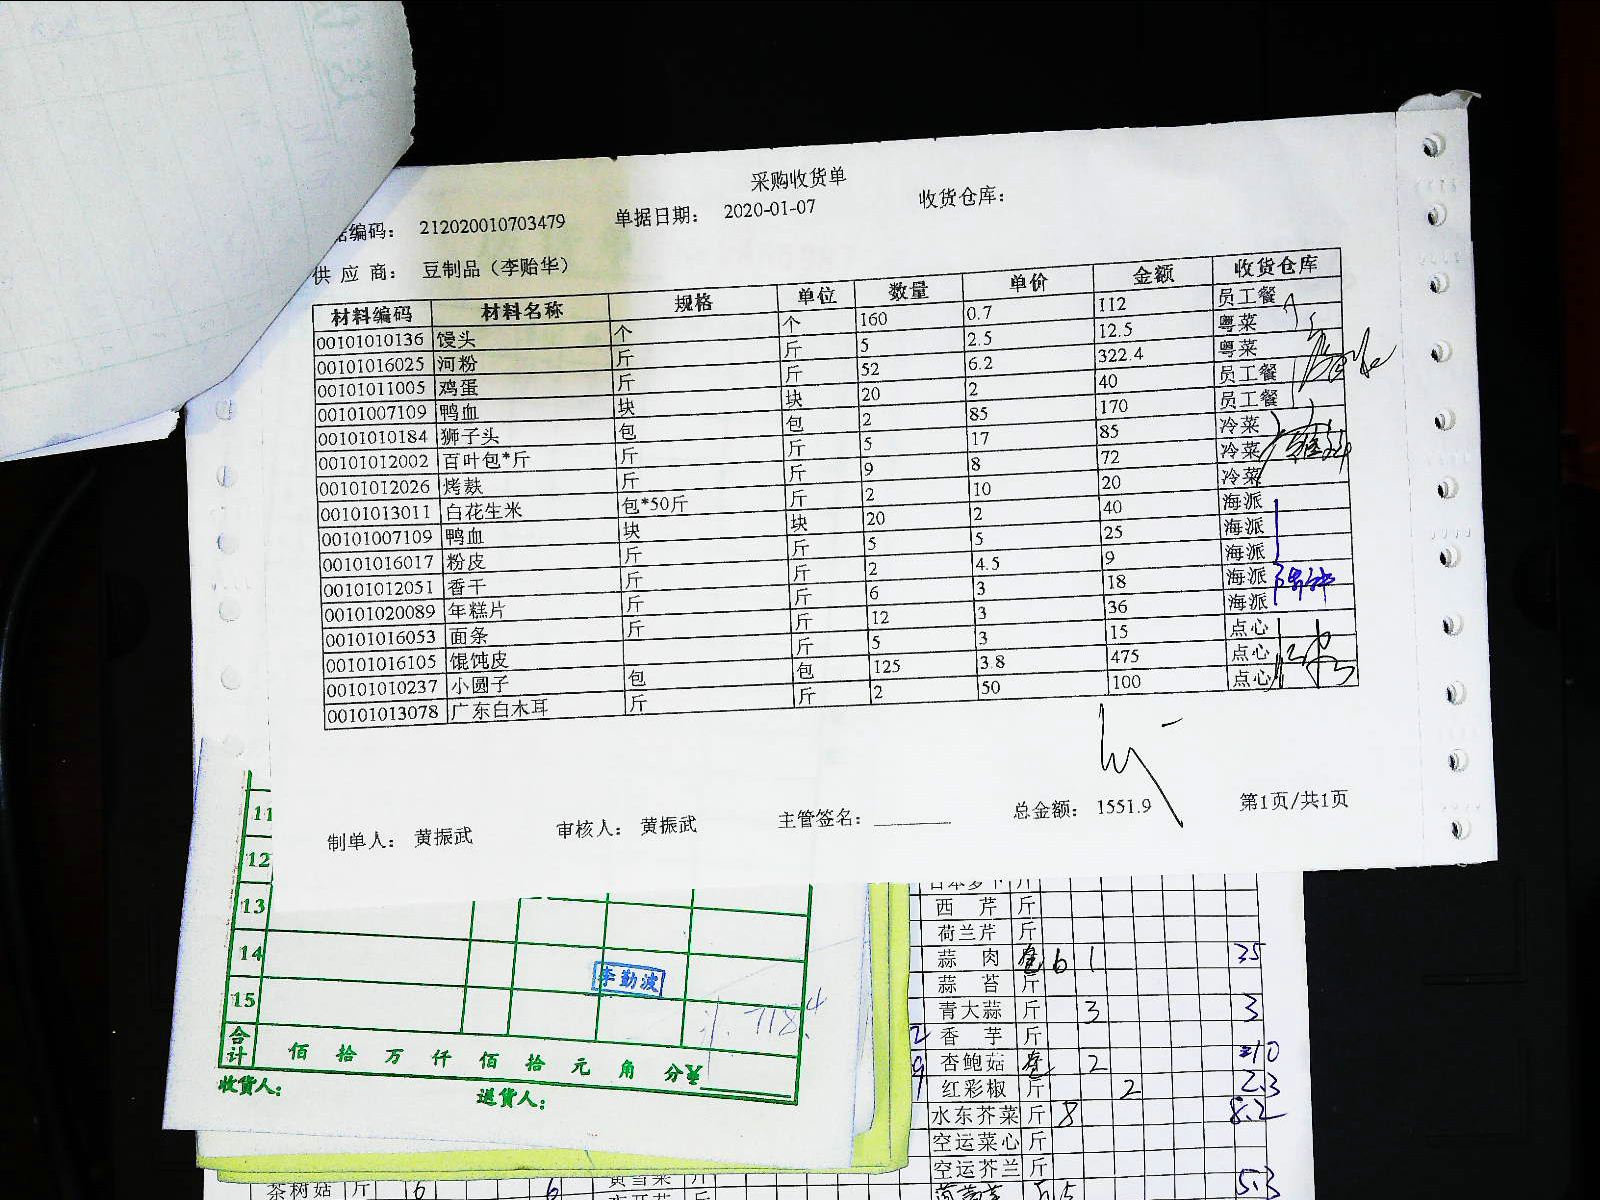 采购收货单
编码： 212020010703479 单据日期： 2020-01-07 收货仓库：
供 应 商： 豆制品（李贻华）
材料编码 材料名称 规格 单位 数量 单价 金额 收货仓库
00101010136 馒头 个 个 160 0.7 112 员工餐
00101016025 河粉 斤 斤 5 2.5 12.5 粤菜
00101011005 鸡蛋 斤 斤 52 6.2 322.4 粤菜
00101007109 鸭血 块 块 20 2 40 员工餐
00101010184 狮子头 包 包 2 85 170 员工餐
00101012002 百叶包*斤 斤 斤 5 17 85 冷菜
00101012026 烤麸 斤 斤 9 8 72 冷菜
00101013011 白花生米 包*50斤 斤 2 10 20 冷菜
00101007109 鸭血 块 块 20 2 40 海派
00101016017 粉皮 斤 斤 5 5 25 海派
00101012051 香干 斤 斤 2 4.5 9 海派
00101020089 年糕片 斤 斤 6 3 18 海派
00101016053 面条 斤 斤 12 3 36 海派
00101016105 馄饨皮 斤 5 3 15 点心
00101010237 小圆子 包 包 125 3.8 475 点心
00101013078 广东白木耳 斤 斤 2 50 100 点心
制单人： 黄振武 审核人： 黄振武 主管签名： 总金额： 1551.9 第1页/共1页
11
12
13
14
15
李勤波
718.4
合计 佰 拾 万 仟 佰 拾 元 角 分¥
收货人： 送货人：
西 芹 斤
荷兰芹 斤
蒜 肉 6 1 35
蒜 苔 斤
青大蒜 斤 3 3
香 芋 斤
杏鲍菇 2 10
红彩椒 斤 2 2.3
水东芥菜 斤 8 8.2
空运菜心 斤
空运芥兰 斤
5.3
茶树菇 斤 6 6